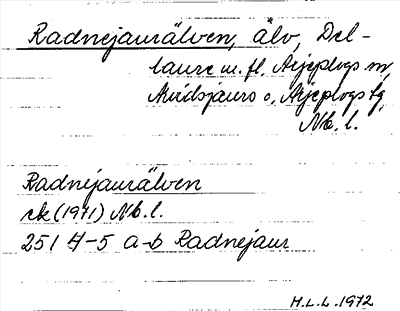 Radnejaurälven, älv, Del-
laure m. fl, Arjeplogs sn,
Avidsjaurs o. Arjeplogs tg
Nb. l.
Radnejaurälven
rk (1971) Nb. l.
25 I 4-5 a-b Radnejaur
H.L.L.1972